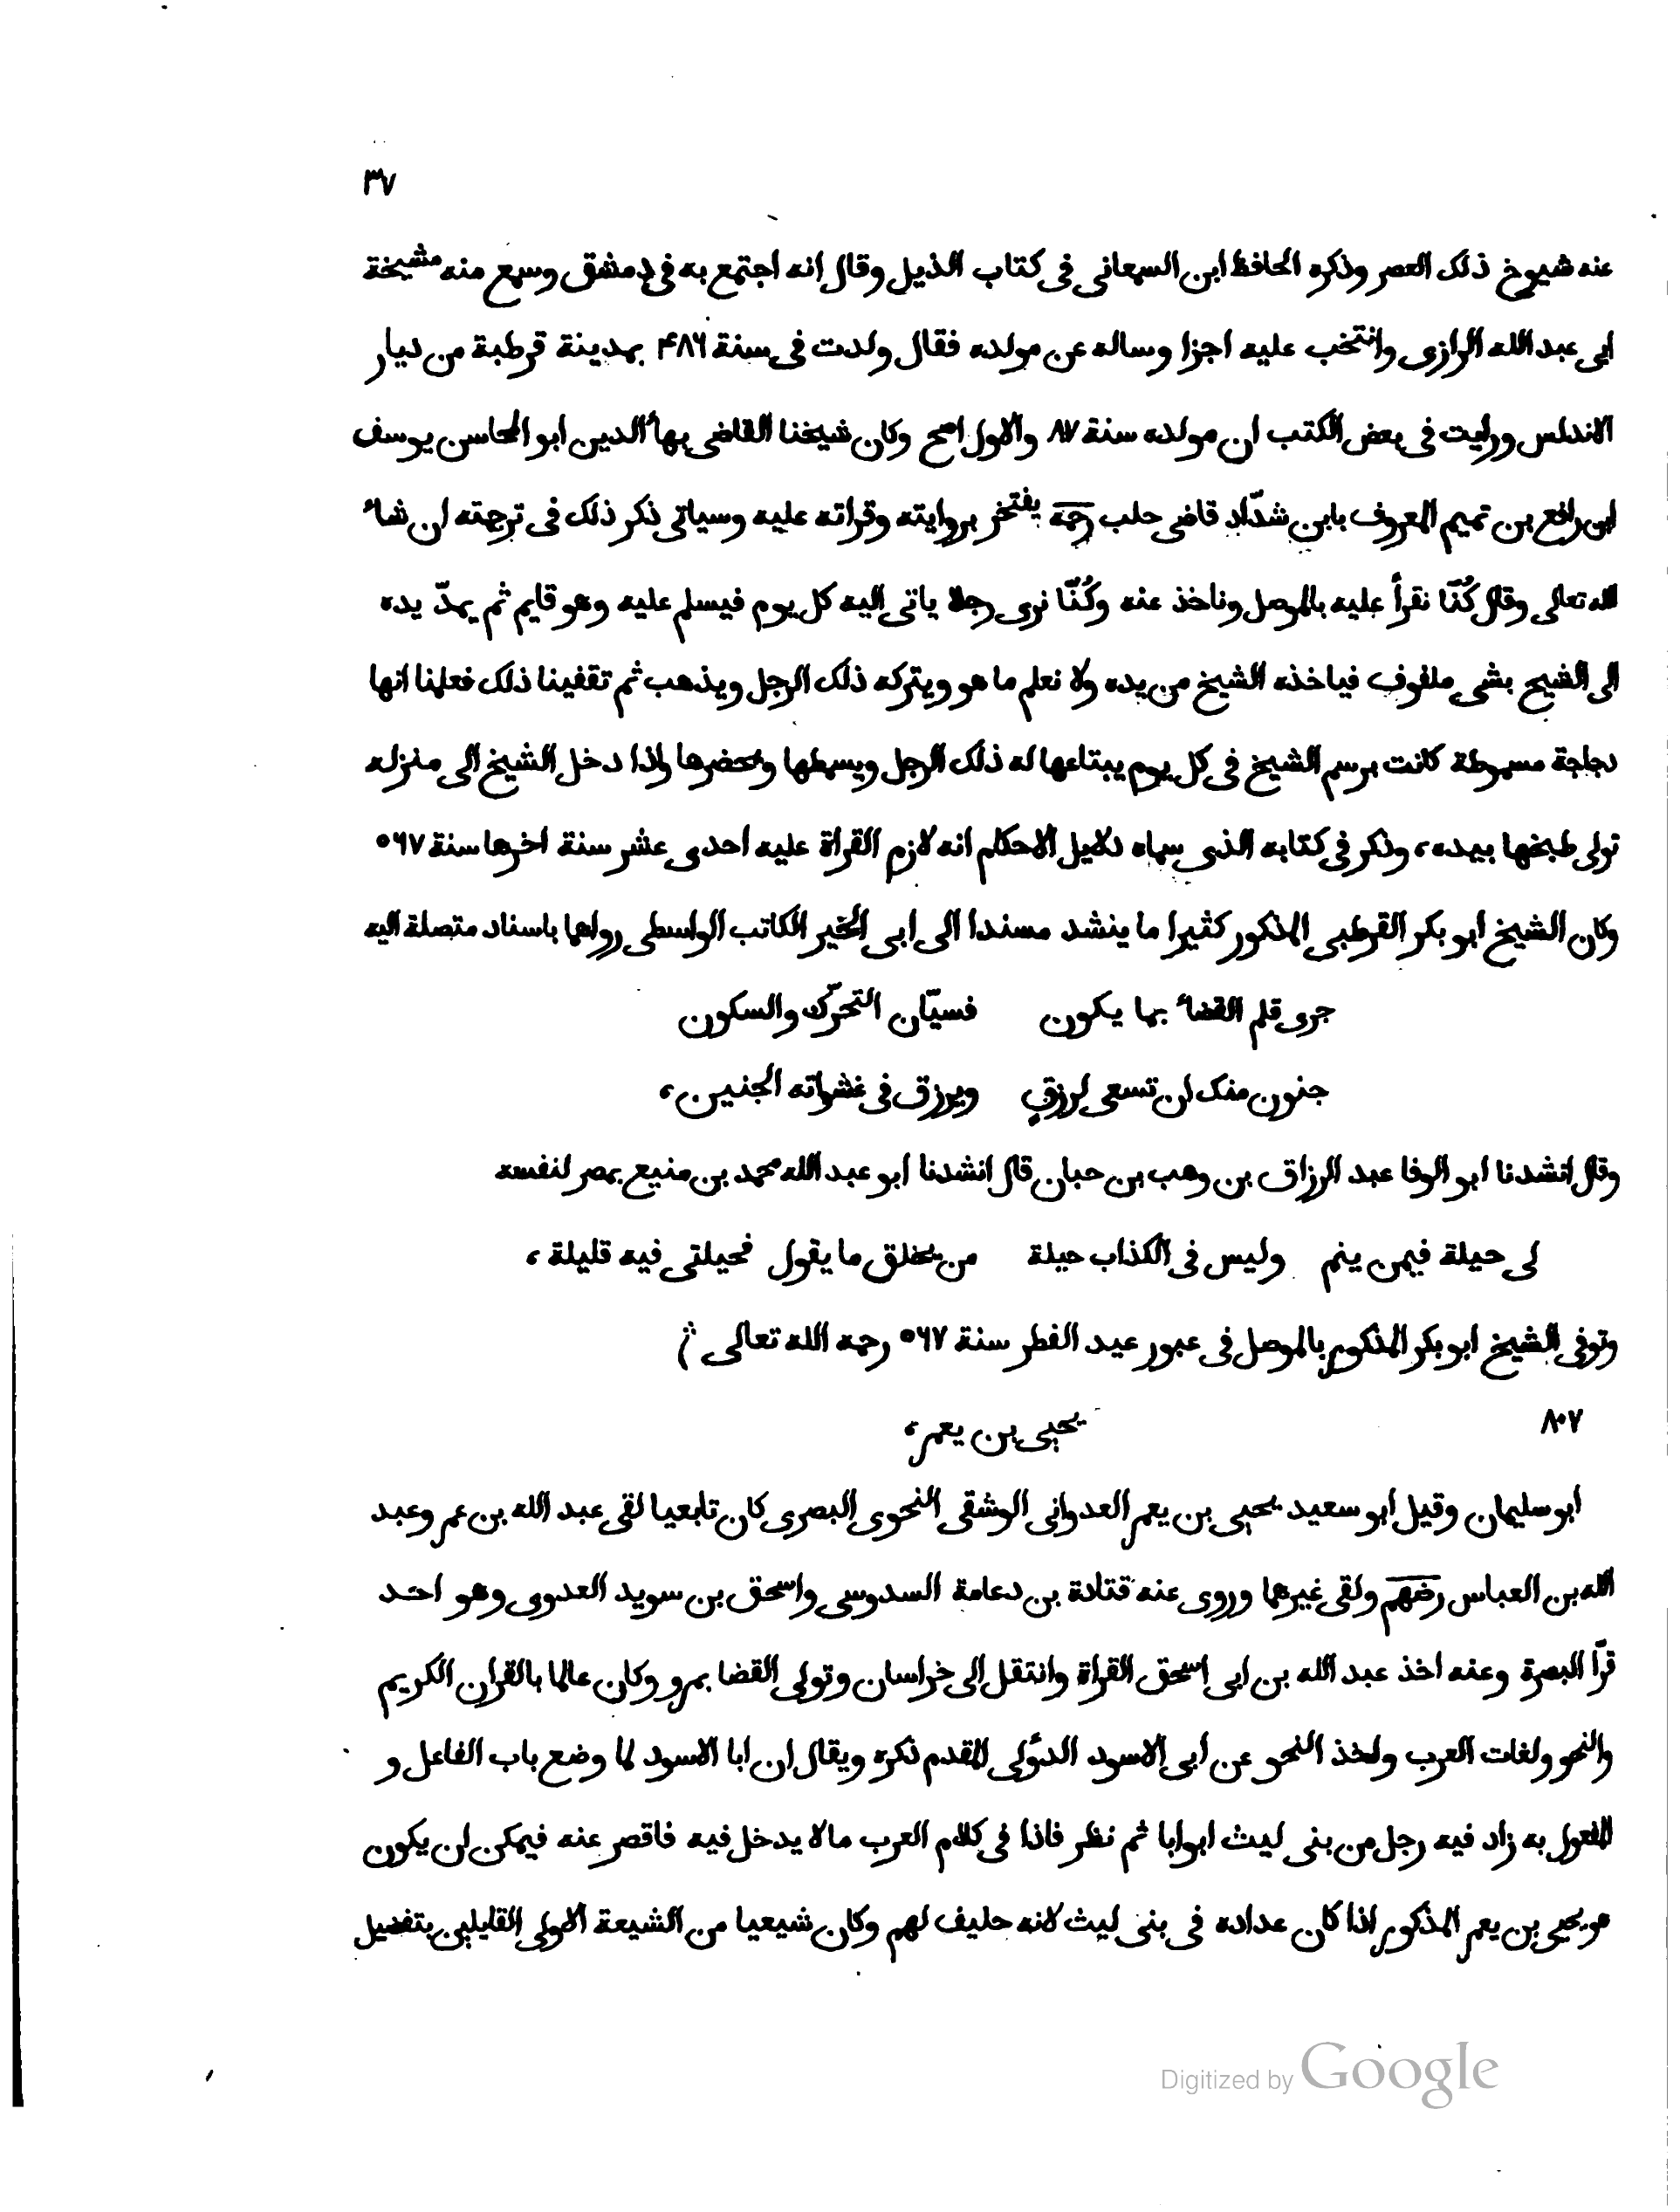 ٣٧
عنه شيوخ ذلك العصر وذكره الحافظ ابن السمعانى فى كتاب الذيل وقال انه اجتمع به فى دمشق وسمع منه مشيخة
ابى عبد الله الرازى وانتخب عليه اجزا وساله عن مولده فقال ولدت فى سنة ۴٨٦ بمدينة قرطبة من ديار
الاندلس ورايت فى بعض الكتب ان مولده سنة ٨٧ والاول اصح وكان شيخنا القاضى بهاء الدين ابو المحاسن يوسف
ابن رافع بن تميم المعروف بابن شدّاد قاضى حلب رحمه يفتخر بروايته وقراته عليه وسياتى ذكر ذلك فى ترجمته ان شاء
الله تعالى وقال كُنّا نقرأ عليه بالموصل وناخذ عنه وكُنّا نرى رجلا ياتى اليه كل يوم فيسلم عليه وهو قايم ثم يمدّ يده
الى الشيخ بشى ملفوف فياخذه الشيخ من يده ولا نعلم ما هو ويتركه ذلك الرجل ويذهب ثم تقفينا ذلك فعلمنا انها
دجاجة مسموطة كانت برسم الشيخ فى كل يوم يبتاعها له ذلك الرجل ويسمطها ويحضرها واذا دخل الشيخ الى منزله
تولى طبخها بيده، وذكر فى كتابه الذى سماه دلايل الاحكام انه لازم القراة عليه احدى عشر سنة اخرها سنة ٥٦٧
وكان الشيخ ابو بكر القرطبى المذكور كثيرا ما ينشد مسندا الى ابى الخير الكاتب الواسطى رواها باسناد متصلة اليه
جرى قلم القضاء بما يكون فسيّان التحرّك والسكون
جنون منك ان تسعى لرزقٍ ويرزق فى غشواته الجنين،
وقال انشدنا ابو الوفا عبد الرزاق بن وهب بن حبان قال انشدنا ابو عبد الله محمد بن منيع بمصر لنفسه
لى حيلة فيمن ينم وليس فى الكذاب حيلة من يخلق ما يقول فحيلتى فيه قليلة،
وتوفى الشيخ ابو بكر المذكور بالموصل فى عبور عيد الفطر سنة ٥٦٧ رحمه الله تعالى
٨٠٧
يحيى بن يعمر،
ابو سليمان وقيل ابو سعيد يحيى بن يعمر العدوانى الوشقى النحوى البصرى كان تابعيا لقى عبد الله بن عمر وعبد
الله بن العباس رضهم ولقى غيرهما وروى عنه قتادة بن دعامة السدوسى واسحق بن سويد العدوى وهو احد
قرّا البصرة وعنه اخذ عبد الله بن ابى اسحق القراة وانتقل الى خراسان وتولى القضا بمرو وكان عالما بالقران الكريم
والنحو ولغات العرب واخذ النحو عن ابى الاسود الدؤلى المقدم ذكره ويقال ان ابا الاسود لما وضع باب الفاعل و
المفعول به زاد فيه رجل من بنى ليث ابوابا ثم نظر فاذا فى كلام العرب مالا يدخل فيه فاقصر عنه فيمكن ان يكون
هو يحيى بن يعمر المذكور اذا كان عداده فى بنى ليث لانه حليف لهم وكان شيعيا من الشيعة الاولى القايلين بتفضيل
Digitized by Google